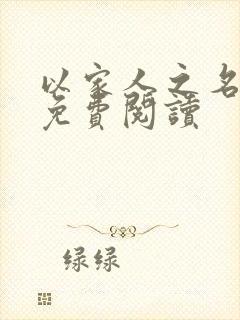 以家人之名
免費閱讀
绿绿